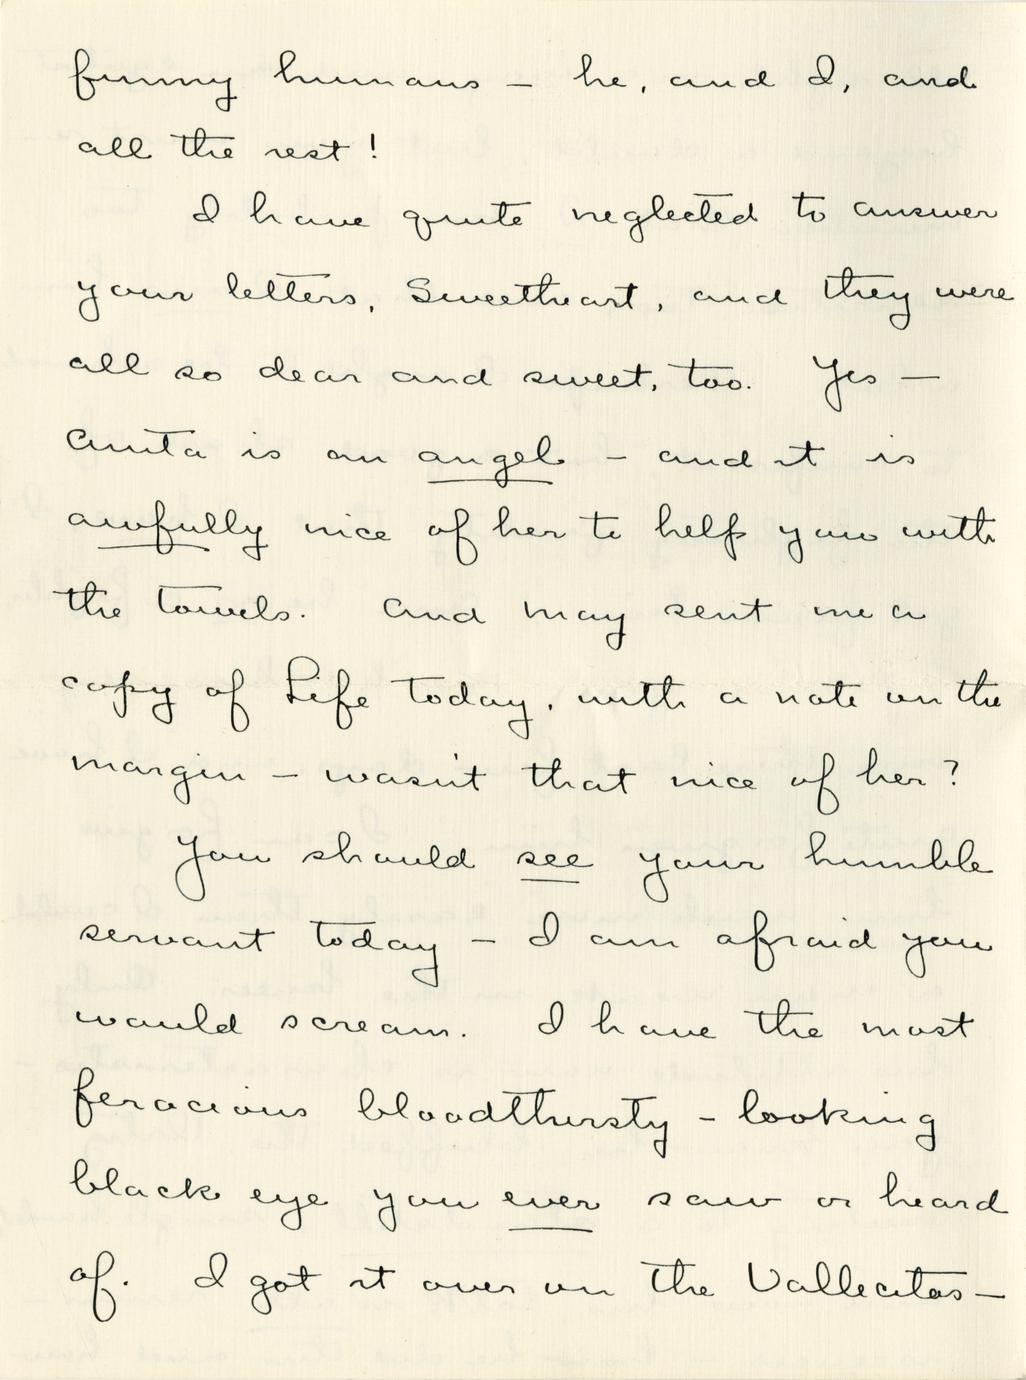 funny humans — he, and I, and
all the rest!
I have quite neglected to answer
your letters, Sweetheart, and they were
all so dear and sweet, too. Yes —
Anita is an angel — and it is
awfully nice of her to help you with
the towels. And May sent me a
copy of Life today, with a note on the
margin — wasn't that nice of her?
You should see your humble
servant today — I am afraid you
would scream. I have the most
ferocious bloodthirsty-looking
black eye you ever saw or heard
of. I got it over on the Vallecitos —